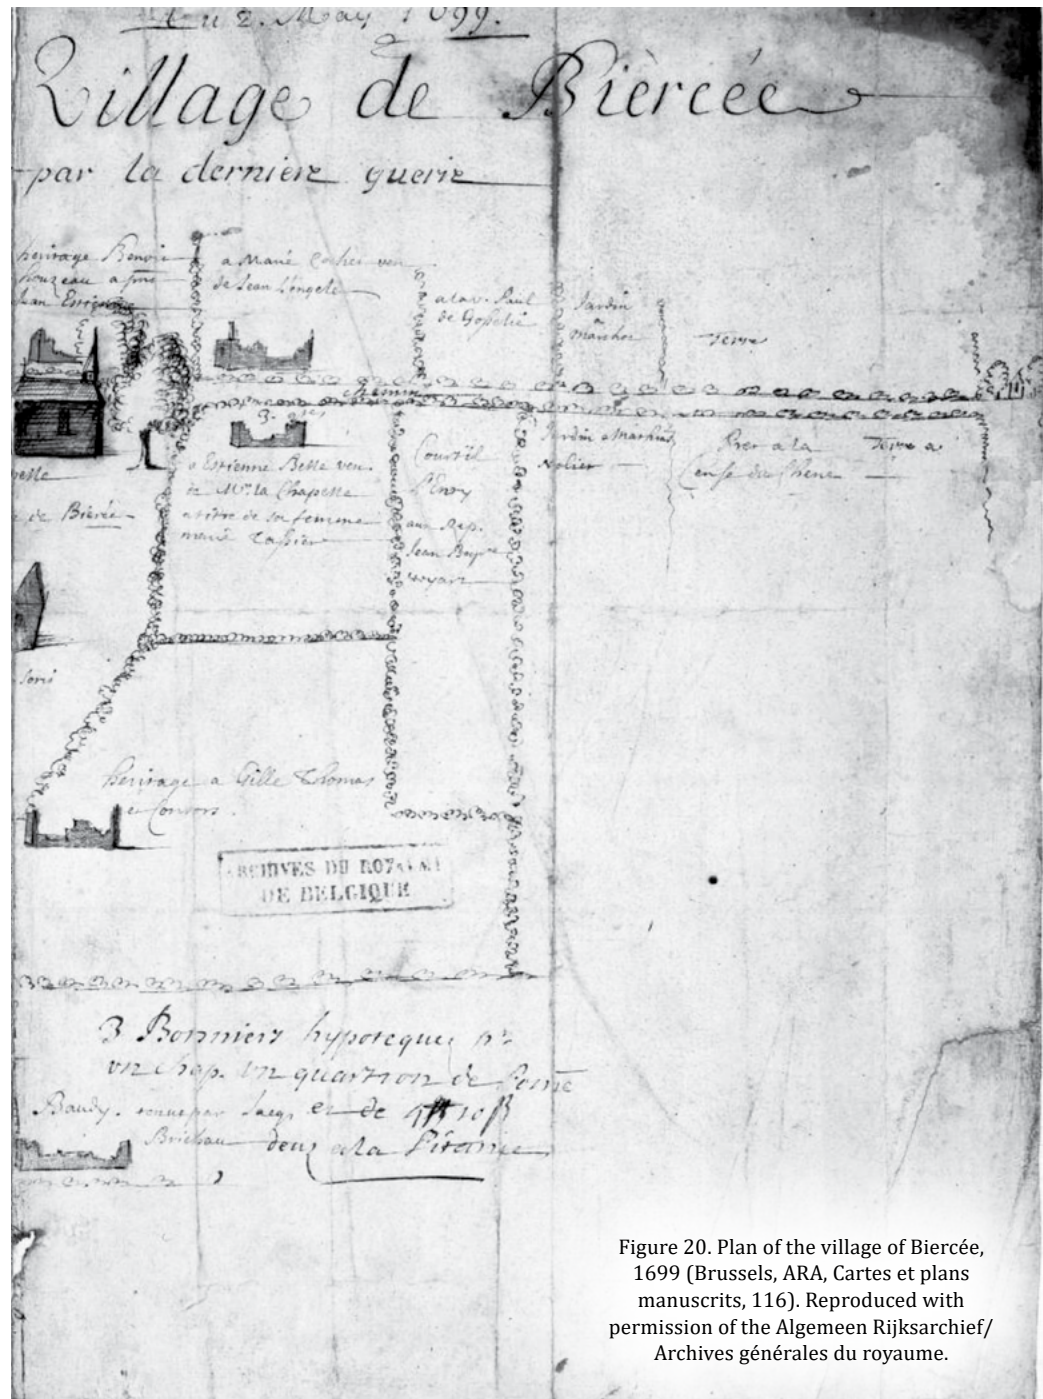 2. May 1699.
Village de Biercée
par la derniere guerre
heritage Benoi
houzeau a
Jean
a Marie veu
de Jean Longele
a la v. Paul
de Gosselie
Jardin
a
marchot
Terre
chemin
3.
a Estienne Belle veu.
de Mr. la Chapelle
a titre de sa femme
marie
Courtil
l'Enry
aux Rep.
Jean
Jardin a
Prez a la
Cense du Chene
Terre a
pelle
de Biercée
heritage a Gille Thomas
et Consors.
ARCHIVES DU ROYAUME
DE BELGIQUE
3 Bonniers hypoteques
vn chap. vn quartron de
Baudy. par et de
deuz a la
Figure 20. Plan of the village of Biercée,
1699 (Brussels, ARA, Cartes et plans
manuscrits, 116). Reproduced with
permission of the Algemeen Rijksarchief/
Archives générales du royaume.